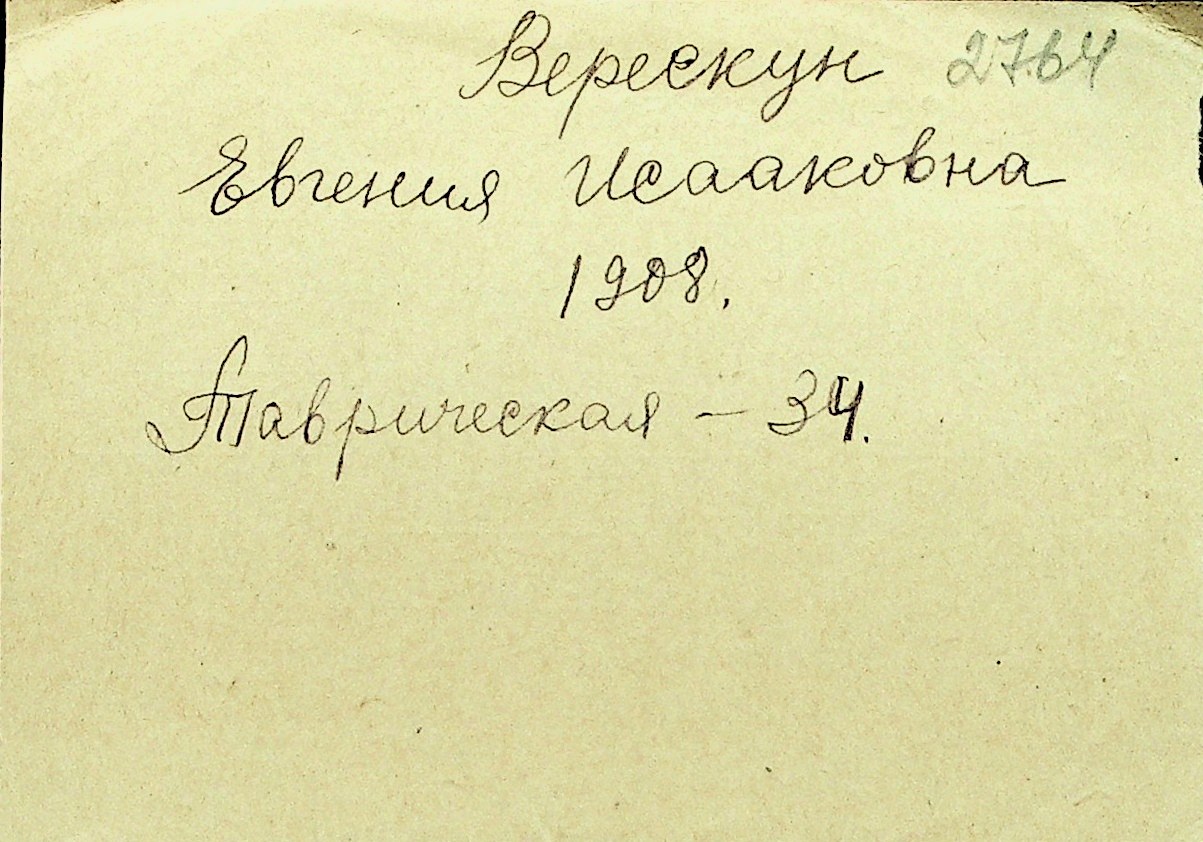 Верескун 2764
Евгения Исааковна
1908.
Таврическая – 34.